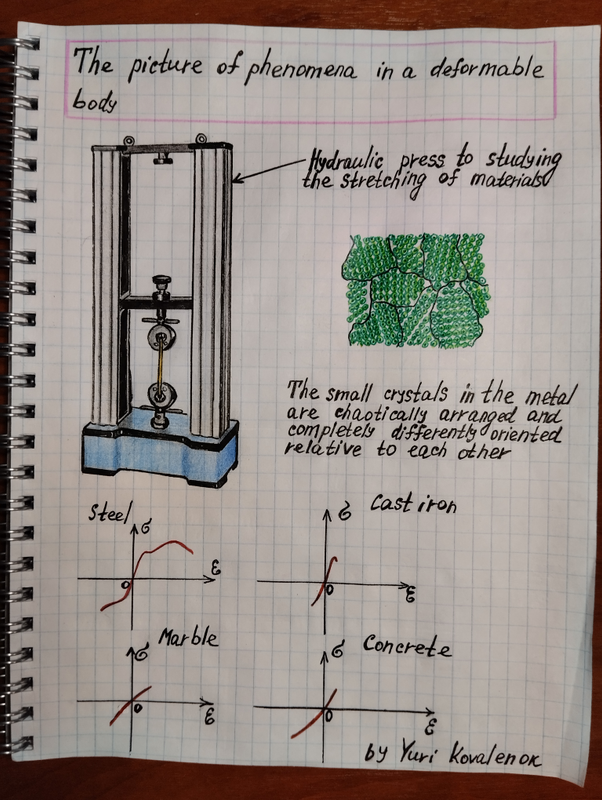 The picture of phenomena in a deformable
body
Hydraulic press to studying
the stretching of materials
The small crystals in the metal
are chaotically arranged and
completely differently oriented
relative to each other
Steel
σ
ε
0
Cast iron
σ
ε
0
Marble
σ
ε
0
Concrete
σ
ε
0
by Yuri Kovalenok